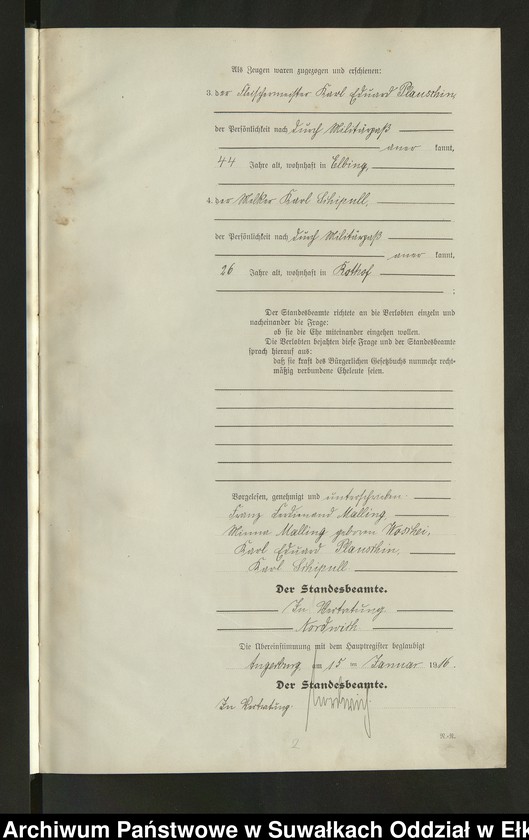 Als Zeugen waren zugezogen und erschienen:
3. der Fleischermeister Karl Eduard Plauschin,
der Persönlichkeit nach durch Militärpaß
aner kannt,
44 Jahre alt, wohnhaft in Elbing,
4. der Melker Karl Schipull,
der Persönlichkeit nach durch Militärpaß
aner kannt,
26 Jahre alt, wohnhaft in Kothof
;
Der Standesbeamte richtete an die Verlobten einzeln und
nacheinander die Frage:
ob sie die Ehe miteinander eingehen wollen.
Die Verlobten bejahten diese Frage und der Standesbeamte
sprach hierauf aus:
daß sie kraft des Bürgerlichen Gesetzbuchs nunmehr recht-
mäßig verbundene Eheleute seien.
Vorgelesen, genehmigt und unterschrieben
Franz Ferdinand Malling
Minna Malling geboren
Karl Eduard Plauschin,
Karl Schipull
Der Standesbeamte.
In Vertretung
Die Übereinstimmung mit dem Hauptregister beglaubigt
Angerburg, am 15 ten Januar 1916.
Der Standesbeamte.
In Vertretung
R.-R.
2
Archiwum Państwowe w Suwałkach Oddział w Ełk